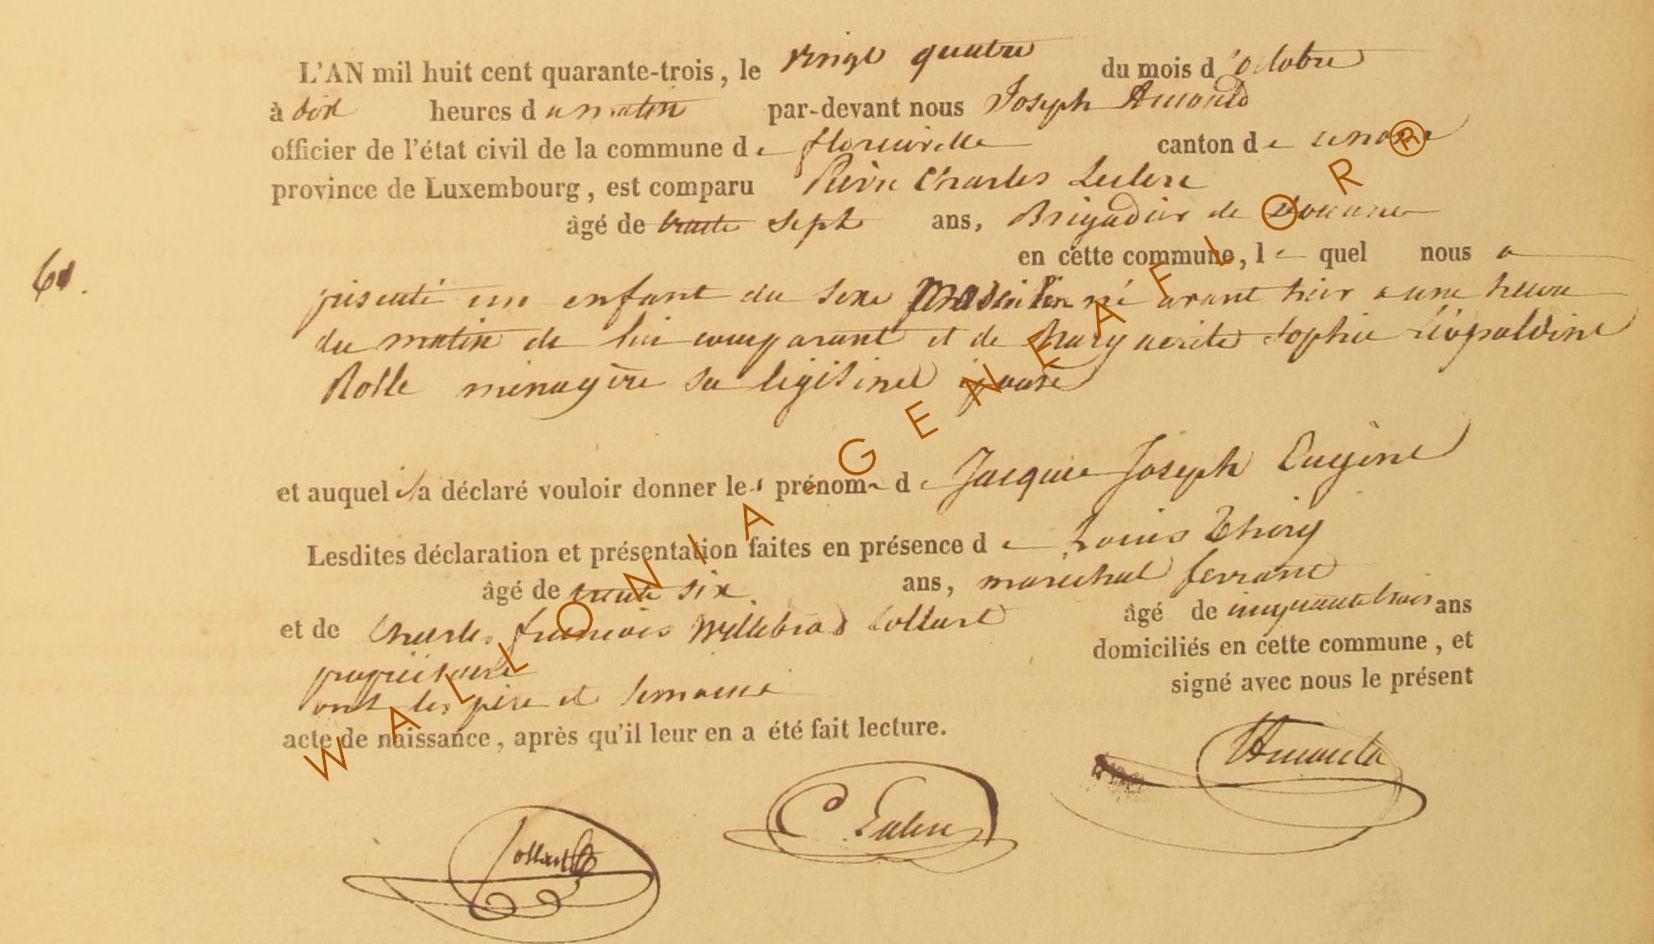 L'AN mil huit cent quarante-trois, le vingt quatre du mois d'octobre
à dix heures du matin par-devant nous Joseph Arnould
officier de l'état civil de la commune de florenville canton de
province de Luxembourg, est comparu Pierre Charles Leclerc
âgé de trente sept ans, Brigadier de Douane
en cette commune, lequel nous a
60.
présenté un enfant du sexe masculin né avant hier a une heure
du matin de lui comparant et de Marguerite Sophie Léopoldine
Rolle ménagère sa légitime épouse
et auquel il a déclaré vouloir donner les prénoms de Jacques Joseph Eugène
Lesdites déclaration et présentation faites en présence de Louis Thiry
âgé de trente six ans, maréchal ferrant
et de Charles françois Willebrod Collart âgé de cinquante trois ans
propriétaire domiciliés en cette commune, et
ont les père et témoins signé avec nous le présent
acte de naissance, après qu'il leur en a été fait lecture.
Arnould
C Leclerc
Collart
WALLONIA-GENEAFLOR®